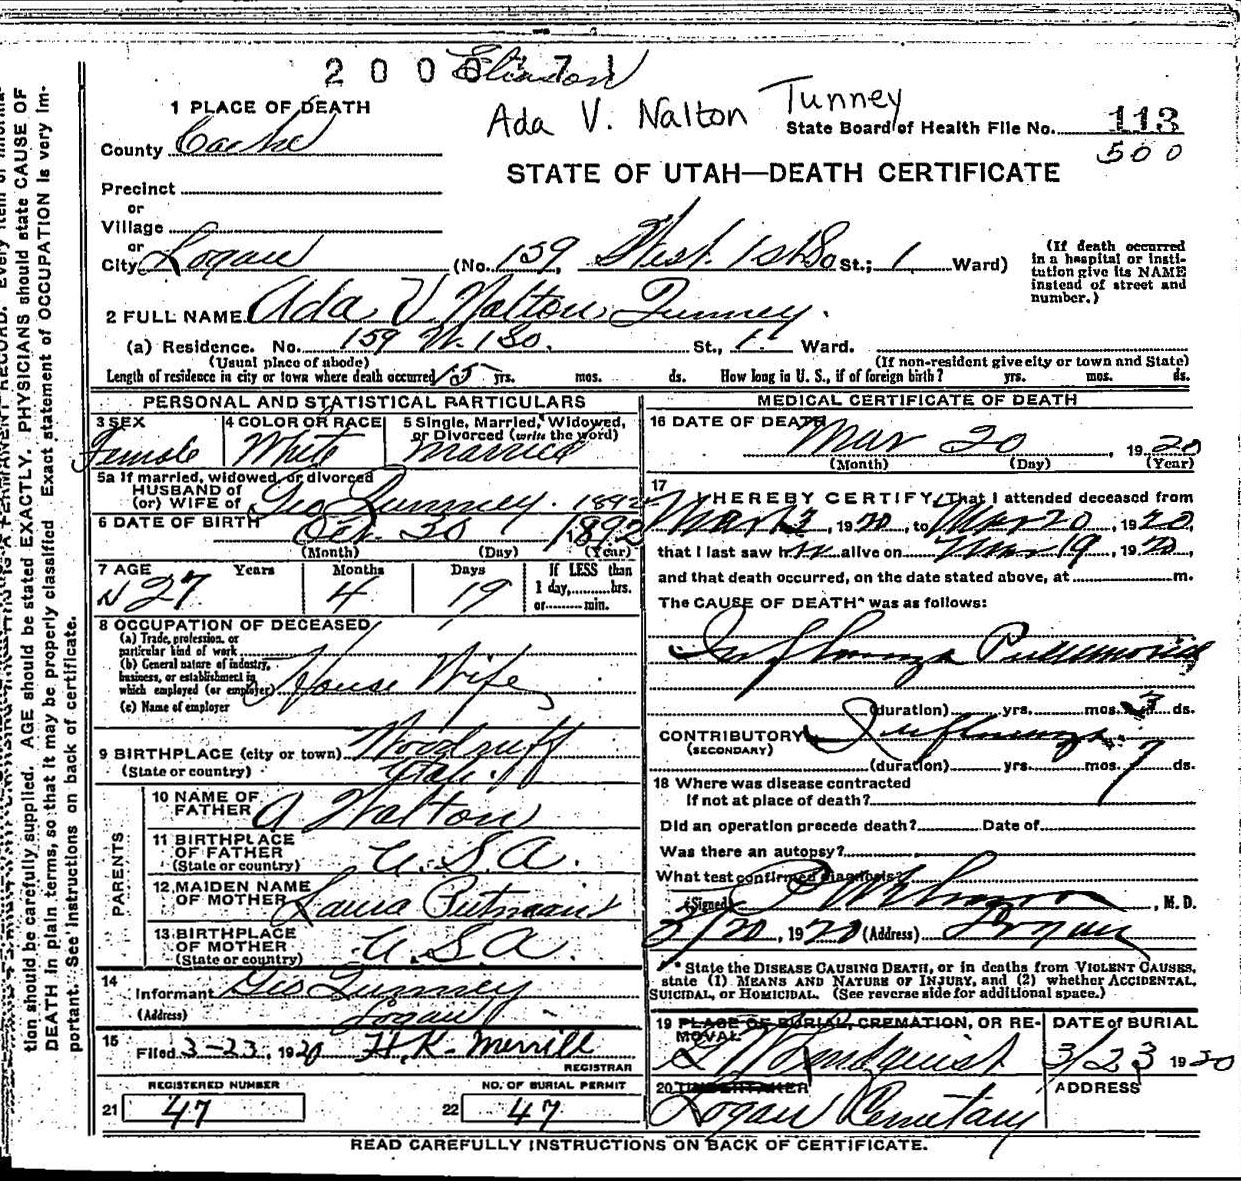 2 0 0 0 7 1
Ada V. Nalton Tunney
1 PLACE OF DEATH
State Board of Health File No. 113
500
County Cache
STATE OF UTAH—DEATH CERTIFICATE
Precinct
or
Village
or
City Logan (No. 159, West 1st So St.; 1 Ward)
(If death occurred in a hospital or institution give its NAME instead of street and number.)
2 FULL NAME Ada V. Nalton Tunney.
(a) Residence. No. 159 W. 1 So. St., 1 Ward.
(Usual place of abode) (If non-resident give city or town and State)
Length of residence in city or town where death occurred 15 yrs. mos. ds. How long in U. S., if of foreign birth? yrs. mos. ds.
PERSONAL AND STATISTICAL PARTICULARS
3 SEX 4 COLOR OR RACE 5 Single, Married, Widowed, or Divorced (write the word)
Female White Married
5a If married, widowed, or divorced
HUSBAND of
(or) WIFE of Geo Tunney. 1892
6 DATE OF BIRTH Oct. 30 1892
(Month) (Day) (Year)
7 AGE Years Months Days If LESS than
27 4 19 1 day, hrs.
or min.
8 OCCUPATION OF DECEASED
(a) Trade, profession, or particular kind of work
(b) General nature of industry, business, or establishment in which employed (or employer)
House Wife
(c) Name of employer
9 BIRTHPLACE (city or town) Woodruff
(State or country) Utah.
PARENTS
10 NAME OF FATHER A Nalton
11 BIRTHPLACE OF FATHER U.S.A.
(State or country)
12 MAIDEN NAME OF MOTHER Laura Putnam
13 BIRTHPLACE OF MOTHER U.S.A.
(State or country)
14 Informant Geo Tunney
(Address) Logan
15 Filed 3-23, 1920 H.K. Merrill
REGISTRAR
REGISTERED NUMBER NO. OF BURIAL PERMIT
21 47 22 47
MEDICAL CERTIFICATE OF DEATH
16 DATE OF DEATH Mar 20, 1920
(Month) (Day) (Year)
17 I HEREBY CERTIFY, That I attended deceased from
Mar 13, 1920, to Mar 20, 1920,
that I last saw her alive on Mar 19, 1920,
and that death occurred, on the date stated above, at m.
The CAUSE OF DEATH* was as follows:
Influenza Pneumonia
(duration) yrs. mos. 3 ds.
CONTRIBUTORY Influenza.
(SECONDARY)
(duration) yrs. mos. 7 ds.
18 Where was disease contracted
If not at place of death?
Did an operation precede death? Date of
Was there an autopsy?
What test confirmed diagnosis?
(Signed) , M.D.
3/20, 1920 (Address) Logan
* State the DISEASE CAUSING DEATH, or in deaths from VIOLENT CAUSES,
state (1) MEANS AND NATURE OF INJURY, and (2) whether ACCIDENTAL,
SUICIDAL, or HOMICIDAL. (See reverse side for additional space.)
19 PLACE OF BURIAL, CREMATION, OR REMOVAL DATE of BURIAL
Lindquist 3/23 1920
20 UNDERTAKER ADDRESS
Logan Cemetary
READ CAREFULLY INSTRUCTIONS ON BACK OF CERTIFICATE.
tion should be carefully supplied. AGE should be stated EXACTLY. PHYSICIANS should state CAUSE OF
DEATH in plain terms, so that it may be properly classified. Exact statement of OCCUPATION is very im-
portant. See instructions on back of certificate.